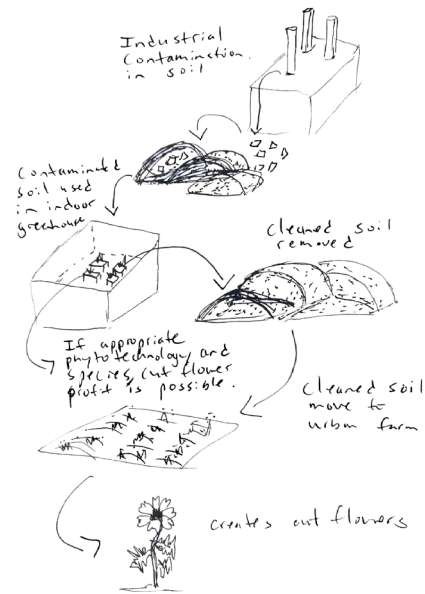 Industrial
Contamination
in soil
Contaminated
soil used
in indoor
greenhouse
Cleaned soil
removed
If appropriate
phytotechnology and
species, cut flower
profit is possible.
Cleaned soil
move to
urban farm
creates cut flowers